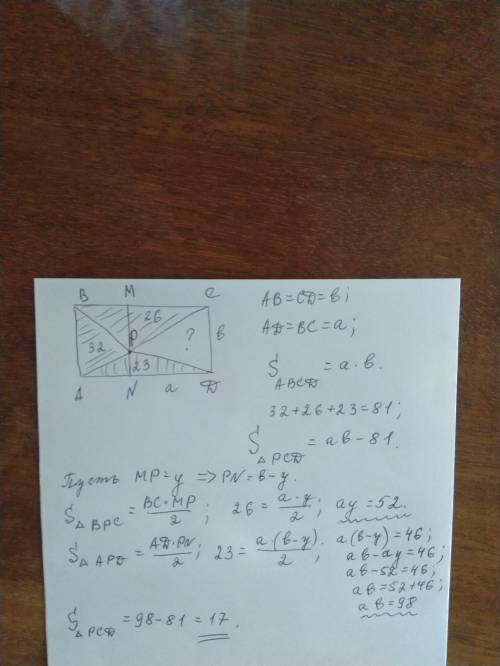 B M C
26
P в
32 ?
23
A N a D
AB=CD=в;
AD=BC=a;
S ABCD =a·в.
32+26+23=81;
S △PCD =aв-81.
Пусть MP=y => PN=в-y.
S △BPC = BC·MP/2; 26= a·y/2; ay=52.
S △APD = AD·PN/2; 23= a(в-y)/2; a(в-y)=46;
aв-ay=46;
aв-52=46;
aв=52+46;
aв=98
S △PCD =98-81=17.